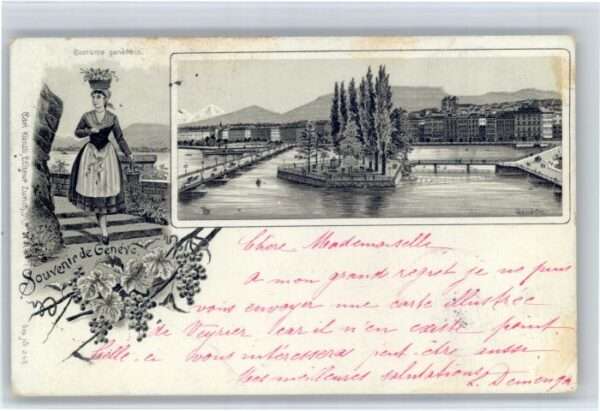 Costume genevois.
Carl Künzli, Editeur Zurich
Souvenir de Genève
Genève
Chère Mademoiselle
A mon grand regret je ne puis
vous envoyer une carte illustrée
de Veyrier car il n'en existe point
Celle-ci vous intéressera peut-être aussi
Mes meilleures salutations
L. Demenga